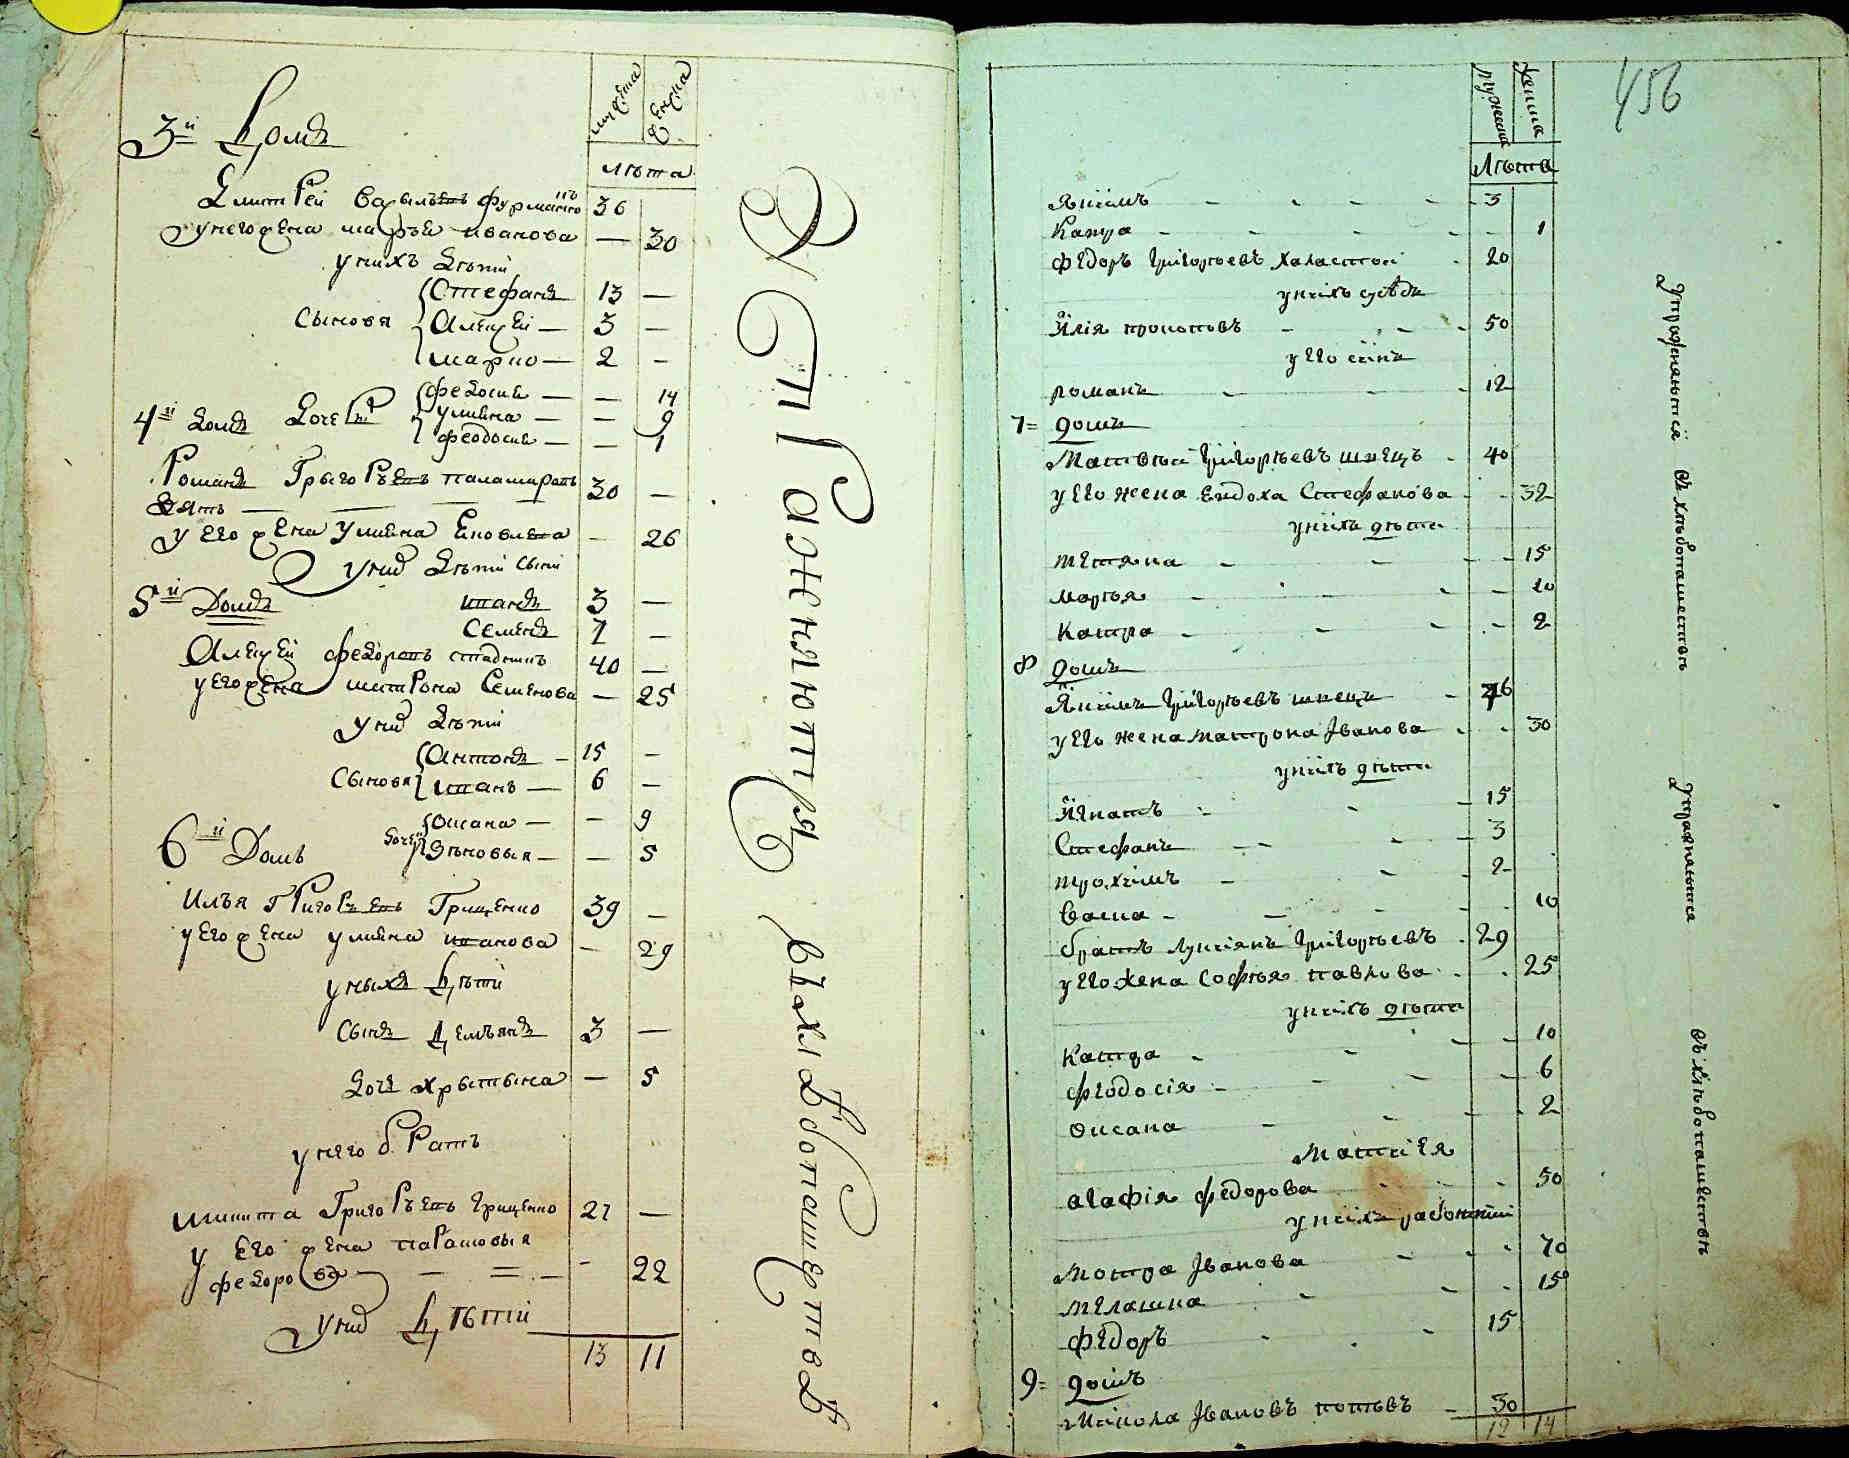 мужеска
женска
лѣта
3й Домъ
Дмитрей Васылъевъ фурманко 36
у него жена марья иванова — 30
у нихъ дѣти
Сыновя Стефанъ 13 —
Алексѣй — 3 —
марко — 2 —
Дочери федосия — — 14
4й домъ
улияна — — 9
феодосия — — 1
Романъ Грыгоръевъ паламаревъ 30 —
зять
у Его жена улияна — 26
у нихъ дѣти сыни
5й Домъ
иванъ 3 —
Семенъ 1 —
Алексѣй федоровъ 40 —
у Его жена митрона Семенова — 25
у нихъ дѣти
Сыновя Антонъ — 15 —
иванъ — 6 —
Оксана — — 9
6й Домъ
дочери Зѣновыя — — 5
Илъя Григоръевъ Грищенко 39 —
у Его жена улияна иванова — 29
у ныхъ дѣти
Сынъ Демъянъ 3 —
дочь хрыстына — 5
у него братъ
Никита Григоръевъ грищенко 27 —
у Его жена парасковыя
федорова — 22
у нихъ Дѣтїй
13 11
Упражняютця въ хлѣбопашествѣ
456
мужеска
женска
Лѣта
Якимъ 3
Катря 1
федоръ Григорьевъ Халастой 20
у нихъ сусѣди
Илїя прокоповъ 50
у Его сынъ
романъ 12
7= домъ
Матвѣй Григорьевъ швецъ 40
у Его жена Евдоха Стефанова 32
у нихъ дѣти
тетяна 15
марья 10
катря 2
8 домъ
Якимъ Григорьевъ швецъ 46
у Его жена матрона Іванова 30
у нихъ дѣти
Игнатъ 15
Стефанъ 3
трохимъ 2
Васка 10
братъ лукиянъ Григорьевъ 29
у Его жена Софья павлова 25
у нихъ дѣти
катря 10
феодосія 6
оксана 2
мати Ея
агафія федорова 50
у нихъ работній
мотря Іванова 70
мелашка 15
федоръ 15
9= домъ
микола Івановъ поповъ 30
12 14
Упражняютця въ хлѣбопашествѣ
Упражняютця
въ хлѣбопашествѣ